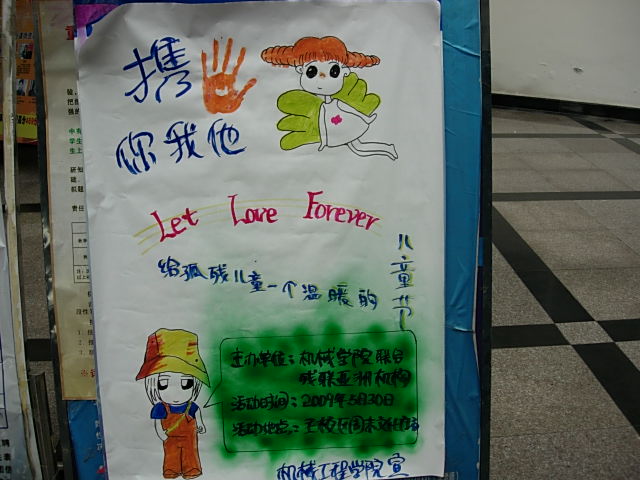 携
你我他
Let Love Forever
给孤残儿童一个温暖的
儿童节
主办单位：机械学院联合
残联亚洲机构
活动时间：2009年5月30日
活动地点：
机械工程学院宣